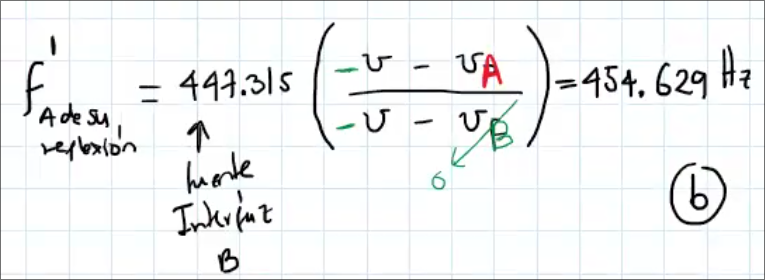 f'
A de su reflexión = 447.315 ( (-v - v_A) / (-v - v_B) ) = 454.629 Hz
0
↑
fuente
Interfaz
B
b